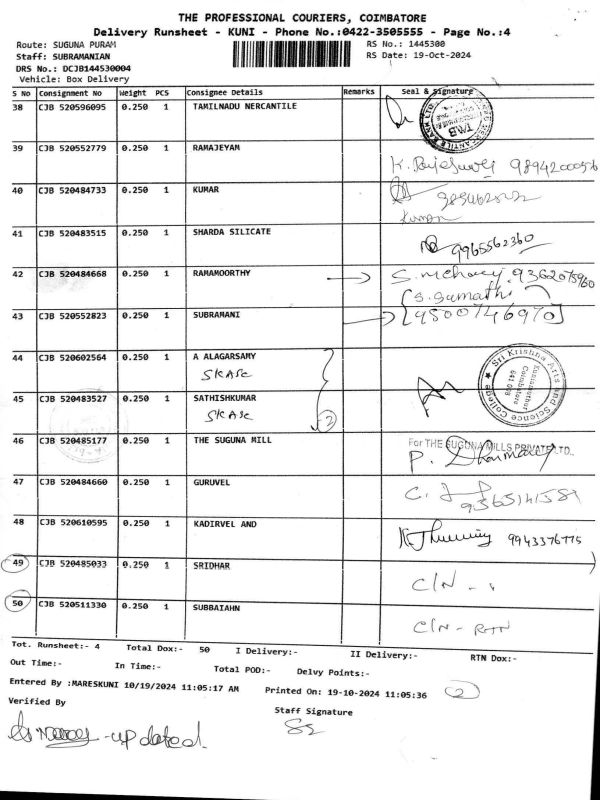 THE PROFESSIONAL COURIERS, COIMBATORE
Delivery Runsheet - KUNI - Phone No.:0422-3505555 - Page No.:4
Route: SUGUNA PURAM RS No.: 1445300
Staff: SUBRAMANIAN RS Date: 19-Oct-2024
DRS No.: DCJB144530004
Vehicle: Box Delivery
S No Consignment No Weight PCS Consignee Details Remarks Seal & Signature
38 CJB 520596095 0.250 1 TAMILNADU NERCANTILE
TAB
39 CJB 520552779 0.250 1 RAMAJEYAM
K.
40 CJB 520484733 0.250 1 KUMAR
Kumar
41 CJB 520483515 0.250 1 SHARDA SILICATE
9965562360
42 CJB 520484668 0.250 1 RAMAMOORTHY
S. 9362075960
S. Sumathi
43 CJB 520552823 0.250 1 SUBRAMANI
[9500746970]
44 CJB 520602564 0.250 1 A ALAGARSAMY
SKASC
Sri Krishna Arts and Science College
Kuniamuthur
Coimbatore
641 008
45 CJB 520483527 0.250 1 SATHISHKUMAR
SKASC 2
46 CJB 520485177 0.250 1 THE SUGUNA MILL
For THE SUGUNA MILLS PRIVATE LTD.
P.
47 CJB 520484660 0.250 1 GURUVEL
C.
48 CJB 520610595 0.250 1 KADIRVEL AND
9943376775
49 CJB 520485033 0.250 1 SRIDHAR
C/N - "
50 CJB 520511330 0.250 1 SUBBAIAHN
C/N - RTN
Tot. Runsheet:- 4 Total Dox:- 50 I Delivery:- II Delivery:- RTN Dox:-
Out Time:- In Time:- Total POD:- Delvy Points:-
Entered By :MARESKUNI 10/19/2024 11:05:17 AM Printed On: 19-10-2024 11:05:36 2
Verified By Staff Signature
- updated.